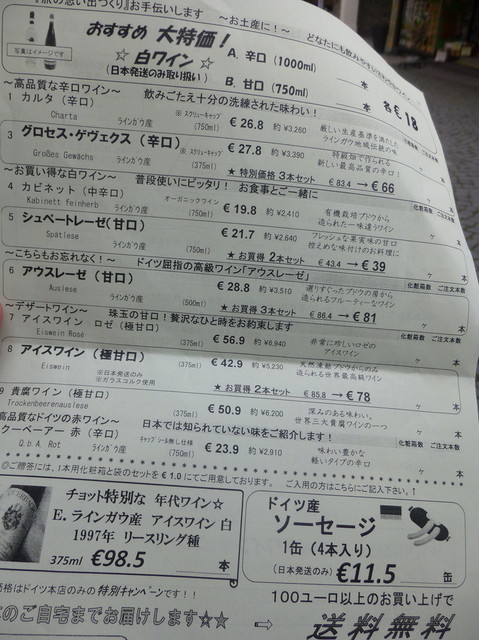 旅の思い出づくり』お手伝いします ～お土産に！～ どなたにも飲みやす
おすすめ 大特価！
☆ 白ワイン ☆
(日本発送のみ取り扱い)
写真はイメージです
A. 辛口 (1000ml) 本
B. 甘口 (750ml) 本
各€ 18
～高品質な辛口ワイン～ 飲みごたえ十分の洗練された味わい！
1 カルタ (辛口) ※スクリューキャップ € 26.8 約¥3,260 厳しい生産基準を満たした
Charta ラインガウ産 (750ml) ラインガウ地域伝統の味
3 グロセス・ゲヴェクス (辛口) € 27.8 約¥3,390 特級畑で作られる
Großes Gewächs ラインガウ産 (375ml) 新しい最高品質の辛口！
★ 特別価格 3本セット € 83.4 → € 66
～お買い得な白ワイン～ 普段使いにピッタリ！ お食事とご一緒に 化粧箱数 ご注文本数
4 カビネット (中辛口) オーガニックワイン € 19.8 約¥2,410 有機栽培ブドウから
Kabinett feinherb ラインガウ産 (750ml) 造られた一味違うワイン
5 シュペートレーゼ(甘口) € 21.7 約¥2,640 フレッシュな果実味の甘口
Spätlese ラインガウ産 (750ml) 控えめな味付けのお料理に
★お買得 2本セット € 43.4 → € 39
～こちらもお忘れなく！～ ドイツ屈指の高級ワイン「アウスレーゼ」 化粧箱数 ご注文本数
6 アウスレーゼ (甘口) € 28.8 約¥3,510 選りすぐったブドウの房から
Auslese ラインガウ産 (500ml) 造られるフルーティーなワイン
★ お買得 3本セット € 86.4 → € 81
～デザートワイン～ 珠玉の甘口！贅沢なひと時をお約束します 化粧箱数 ご注文本数
7 アイスワイン ロゼ (極甘口) € 56.9 約¥6,940 非常に珍しいロゼの
Eiswein Rosé (375ml) アイスワイン
8 アイスワイン (極甘口) € 42.9 約¥5,230 天然凍動ブドウからのみ
Eiswein ※日本発送のみ ※ガラスコルク使用 (375ml) 造られる世界最高級ワイン
★お買得 2本セット € 85.8 → € 78
9 貴腐ワイン (極甘口) € 50.9 約¥6,200 深みのある味わい。
Trockenbeerenauslese (375ml) 世界三大貴腐ワインの一つ
高品質なドイツの赤ワイン～ 日本では知られていない味をご紹介します！ 化粧箱数 ご注文本数
クーベアー 赤 (辛口) キャップシール無し仕様 € 23.9 約¥2,910 味わい豊かな
Q.b.A. Rot (750ml) 軽いタイプの辛口
◎ご贈答には、1本用化粧箱と袋のセットが € 1.0 にてご用意しております。 ご入用の方はこちらにご記入下さい。↑
チョット特別な 年代ワイン☆
E. ラインガウ産 アイスワイン 白
1997年 リースリング種
375ml €98.5 本
ドイツ産
ソーセージ
1缶 (4本入り)
(日本発送のみ) €11.5 缶
価格はドイツ本店のみの特別キャンペーンです！！
のご自宅までお届けします☆☆ ⇒
100ユーロ以上のお買い上げで
送料無料